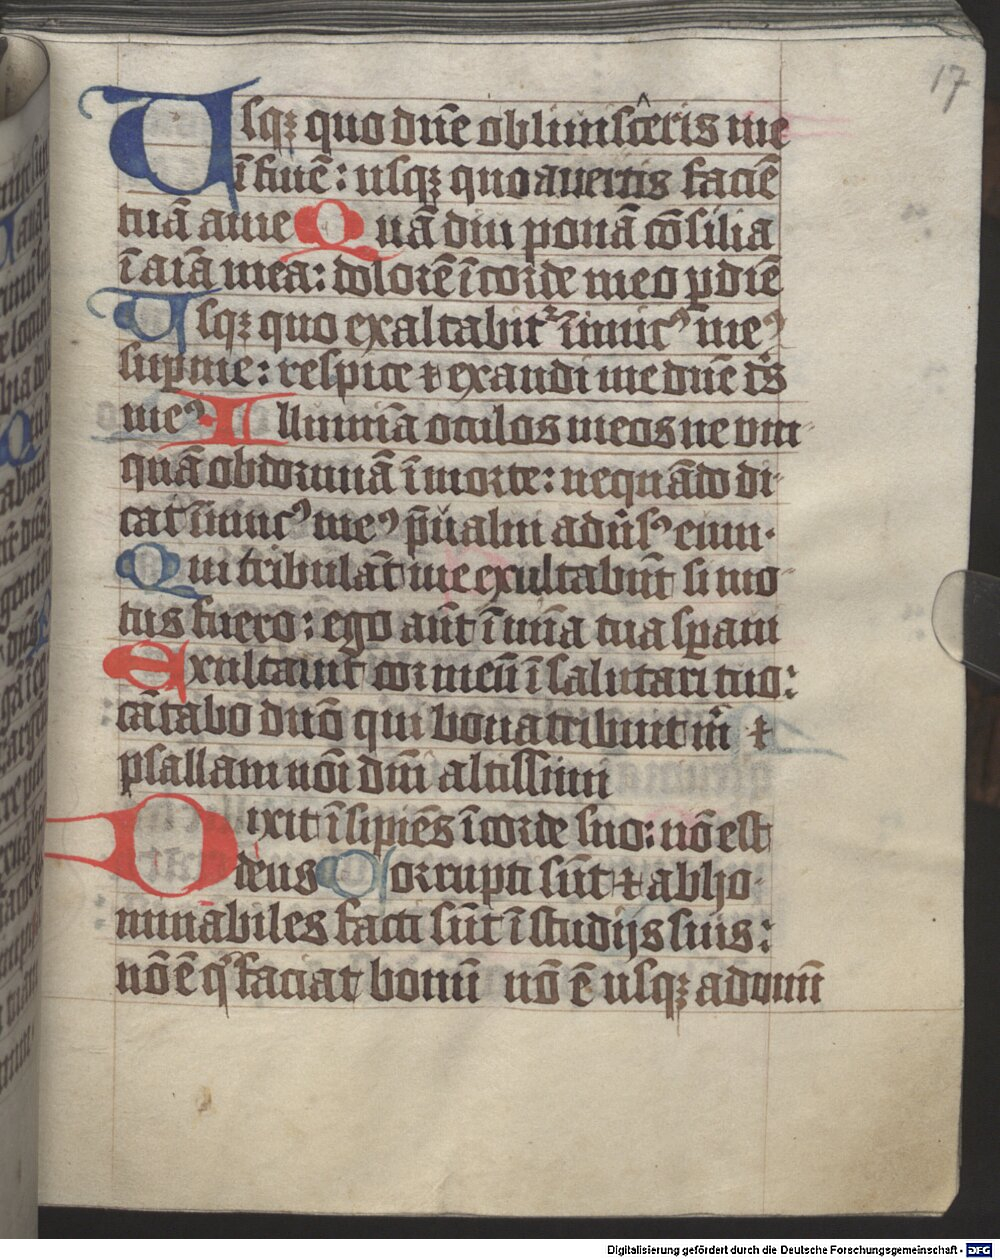 17
Usqꝫ quo dn̄e obliuisc̄eris me
ī finē: usqꝫ quo auertis faciē
tuā a me Quā diu ponā cōsilia
ī aīa mea: dolorē ī corde meo ꝑ diē
Usqꝫ quo exaltabit᷑ īimicꝰ meꝰ
suꝑ me: respice ⁊ exaudi me dn̄e dˢ̄
meꝰ Illumīa oculos meos ne vm-
quā obdormiā ī morte: ne quādo di-
cat īimicꝰ meꝰ p̄ualui aduˢ̄ eum.
Qui tribulāt me exultabūt si mo-
tus fuero: ego aūt ī mīa tua sꝑaui
Exultauit cor meū ī salutari tuo:
cātabo dnō qui bona tribuit m̄ ⁊
psallam nōi dn̄i altissimi
Dixit īsipiēs ī corde suo: nō est
deus Corrupti sūt ⁊ abho-
minabiles facti sūt ī studijs suis:
nō ē q faciat bonū nō ē usqꝫ ad vnū
Digitalisierung gefördert durch die Deutsche Forschungsgemeinschaft - DFG